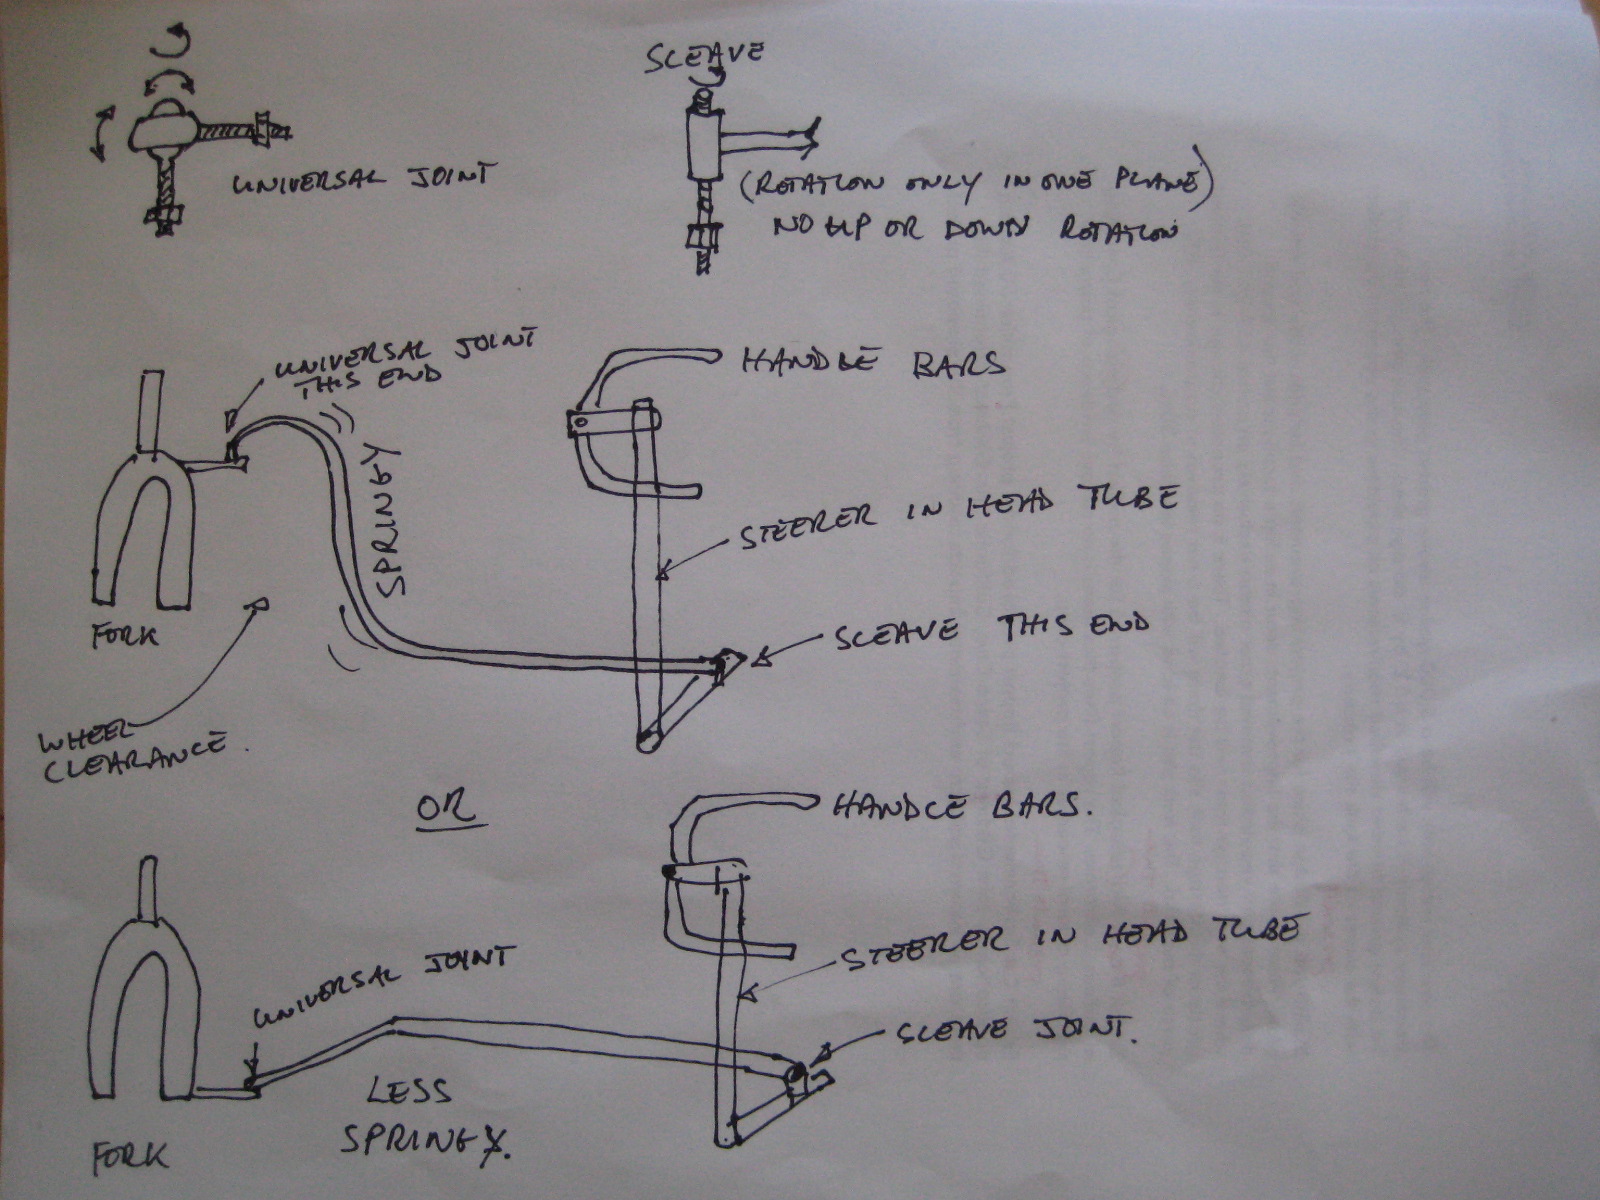 SLEAVE
UNIVERSAL JOINT
(ROTATION ONLY IN ONE PLANE)
NO UP OR DOWN ROTATION
UNIVERSAL JOINT
THIS END
HANDLE BARS
SPRINGY
STEERER IN HEAD TUBE
FORK
SLEAVE THIS END
WHEEL
CLEARANCE.
OR
HANDLE BARS.
UNIVERSAL JOINT
STEERER IN HEAD TUBE
SLEAVE JOINT.
LESS
SPRINGY.
FORK